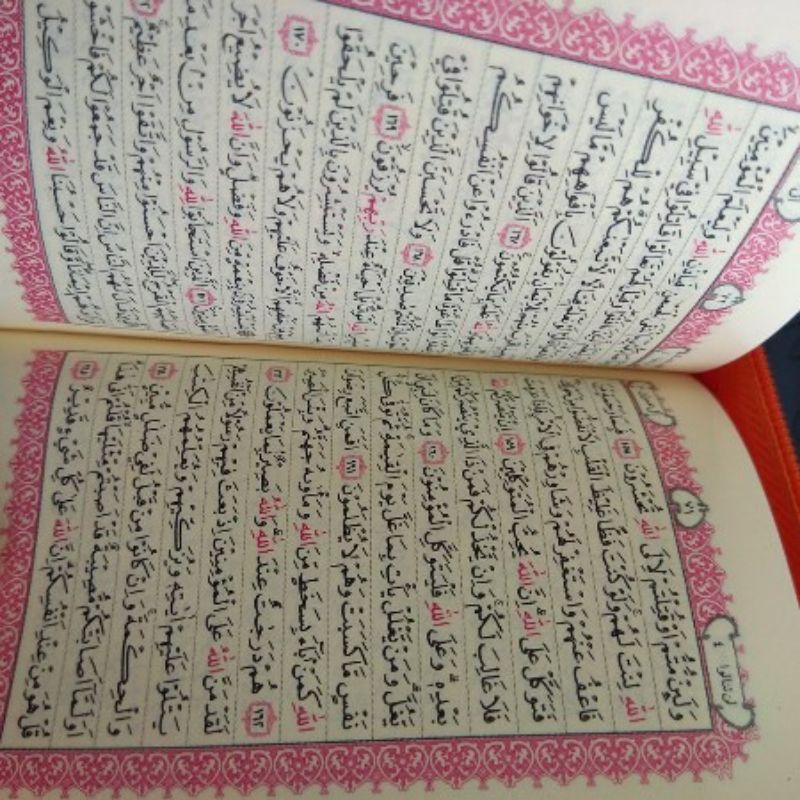 لن تنالوا ٤
٧١
وَلَئِنْ مُتُّمْ اَوْ قُتِلْتُمْ لَاِلَى اللّٰهِ تُحْشَرُونَ ١٥٨ فَبِمَا رَحْمَةٍ مِنَ
اللّٰهِ لِنْتَ لَهُمْ وَلَوْ كُنْتَ فَظًّا غَلِيظَ الْقَلْبِ لَانْفَضُّوا مِنْ حَوْلِكَ
فَاعْفُ عَنْهُمْ وَاسْتَغْفِرْ لَهُمْ وَشَاوِرْهُمْ فِي الْاَمْرِ فَاِذَا عَزَمْتَ
فَتَوَكَّلْ عَلَى اللّٰهِ اِنَّ اللّٰهَ يُحِبُّ الْمُتَوَكِّلِينَ ١٥٩ اِنْ يَنْصُرْكُمُ
فَلَا غَالِبَ لَكُمْ وَاِنْ يَخْذُلْكُمْ فَمَنْ ذَا الَّذِي يَنْصُرُكُمْ مِنْ
بَعْدِهِ وَعَلَى اللّٰهِ فَلْيَتَوَكَّلِ الْمُؤْمِنُونَ ١٦٠ وَمَا كَانَ لِنَبِيٍّ اَنْ
يَغُلَّ وَمَنْ يَغْلُلْ يَأْتِ بِمَا غَلَّ يَوْمَ الْقِيٰمَةِ ثُمَّ تُوَفّٰى كُلُّ
نَفْسٍ مَا كَسَبَتْ وَهُمْ لَا يُظْلَمُونَ ١٦١ اَفَمَنِ اتَّبَعَ رِضْوَانَ
اللّٰهِ كَمَنْ بَاءَ بِسَخَطٍ مِنَ اللّٰهِ وَمَأْوٰيهُ جَهَنَّمُ وَبِئْسَ الْمَصِيرُ
١٦٢ هُمْ دَرَجَاتٌ عِنْدَ اللّٰهِ وَاللّٰهُ بَصِيرٌ بِمَا يَعْمَلُونَ ١٦٣
لَقَدْ مَنَّ اللّٰهُ عَلَى الْمُؤْمِنِينَ اِذْ بَعَثَ فِيهِمْ رَسُولًا مِنْ اَنْفُسِهِمْ
يَتْلُوا عَلَيْهِمْ اٰيَاتِهِ وَيُزَكِّيهِمْ وَيُعَلِّمُهُمُ الْكِتَابَ
وَالْحِكْمَةَ وَاِنْ كَانُوا مِنْ قَبْلُ لَفِي ضَلَالٍ مُبِينٍ ١٦٤
اَوَلَمَّا اَصَابَتْكُمْ مُصِيبَةٌ قَدْ اَصَبْتُمْ مِثْلَيْهَا قُلْتُمْ اَنّٰى هٰذَا
قُلْ هُوَ مِنْ عِنْدِ اَنْفُسِكُمْ اِنَّ اللّٰهَ عَلٰى كُلِّ شَيْءٍ قَدِيرٌ ١٦٥
فَبِاِذْنِ اللّٰهِ وَلِيَعْلَمَ الْمُؤْمِنِينَ
تَعَالَوْا قَاتِلُوا فِي سَبِيلِ اللّٰهِ
لَاتَّبَعْنَاكُمْ هُمْ لِلْكُفْرِ
يَقُولُونَ بِاَفْوَاهِهِمْ مَا لَيْسَ
يَكْتُمُونَ ١٦٧ اَلَّذِينَ قَالُوا لِاِخْوَانِهِمْ
مَا قُتِلُوا قُلْ فَادْرَءُوا عَنْ اَنْفُسِكُمُ
صَادِقِينَ ١٦٨ وَلَا تَحْسَبَنَّ الَّذِينَ قُتِلُوا فِي
بَلْ اَحْيَاءٌ عِنْدَ رَبِّهِمْ يُرْزَقُونَ ١٦٩ فَرِحِينَ
اللّٰهُ مِنْ فَضْلِهِ وَيَسْتَبْشِرُونَ بِالَّذِينَ لَمْ يَلْحَقُوا
خَلْفِهِمْ اَلَّا خَوْفٌ عَلَيْهِمْ وَلَا هُمْ يَحْزَنُونَ ١٧٠
يَسْتَبْشِرُونَ بِنِعْمَةٍ مِنَ اللّٰهِ وَفَضْلٍ وَاَنَّ اللّٰهَ لَا يُضِيعُ اَجْرَ
اَلَّذِينَ اسْتَجَابُوا لِلّٰهِ وَالرَّسُولِ مِنْ بَعْدِ مَا
الْقَرْحُ لِلَّذِينَ اَحْسَنُوا مِنْهُمْ وَاتَّقَوْا اَجْرٌ عَظِيمٌ
لَهُمُ النَّاسُ اِنَّ النَّاسَ قَدْ جَمَعُوا لَكُمْ فَاخْشَوْهُمْ
وَقَالُوا حَسْبُنَا اللّٰهُ وَنِعْمَ الْوَكِيلُ